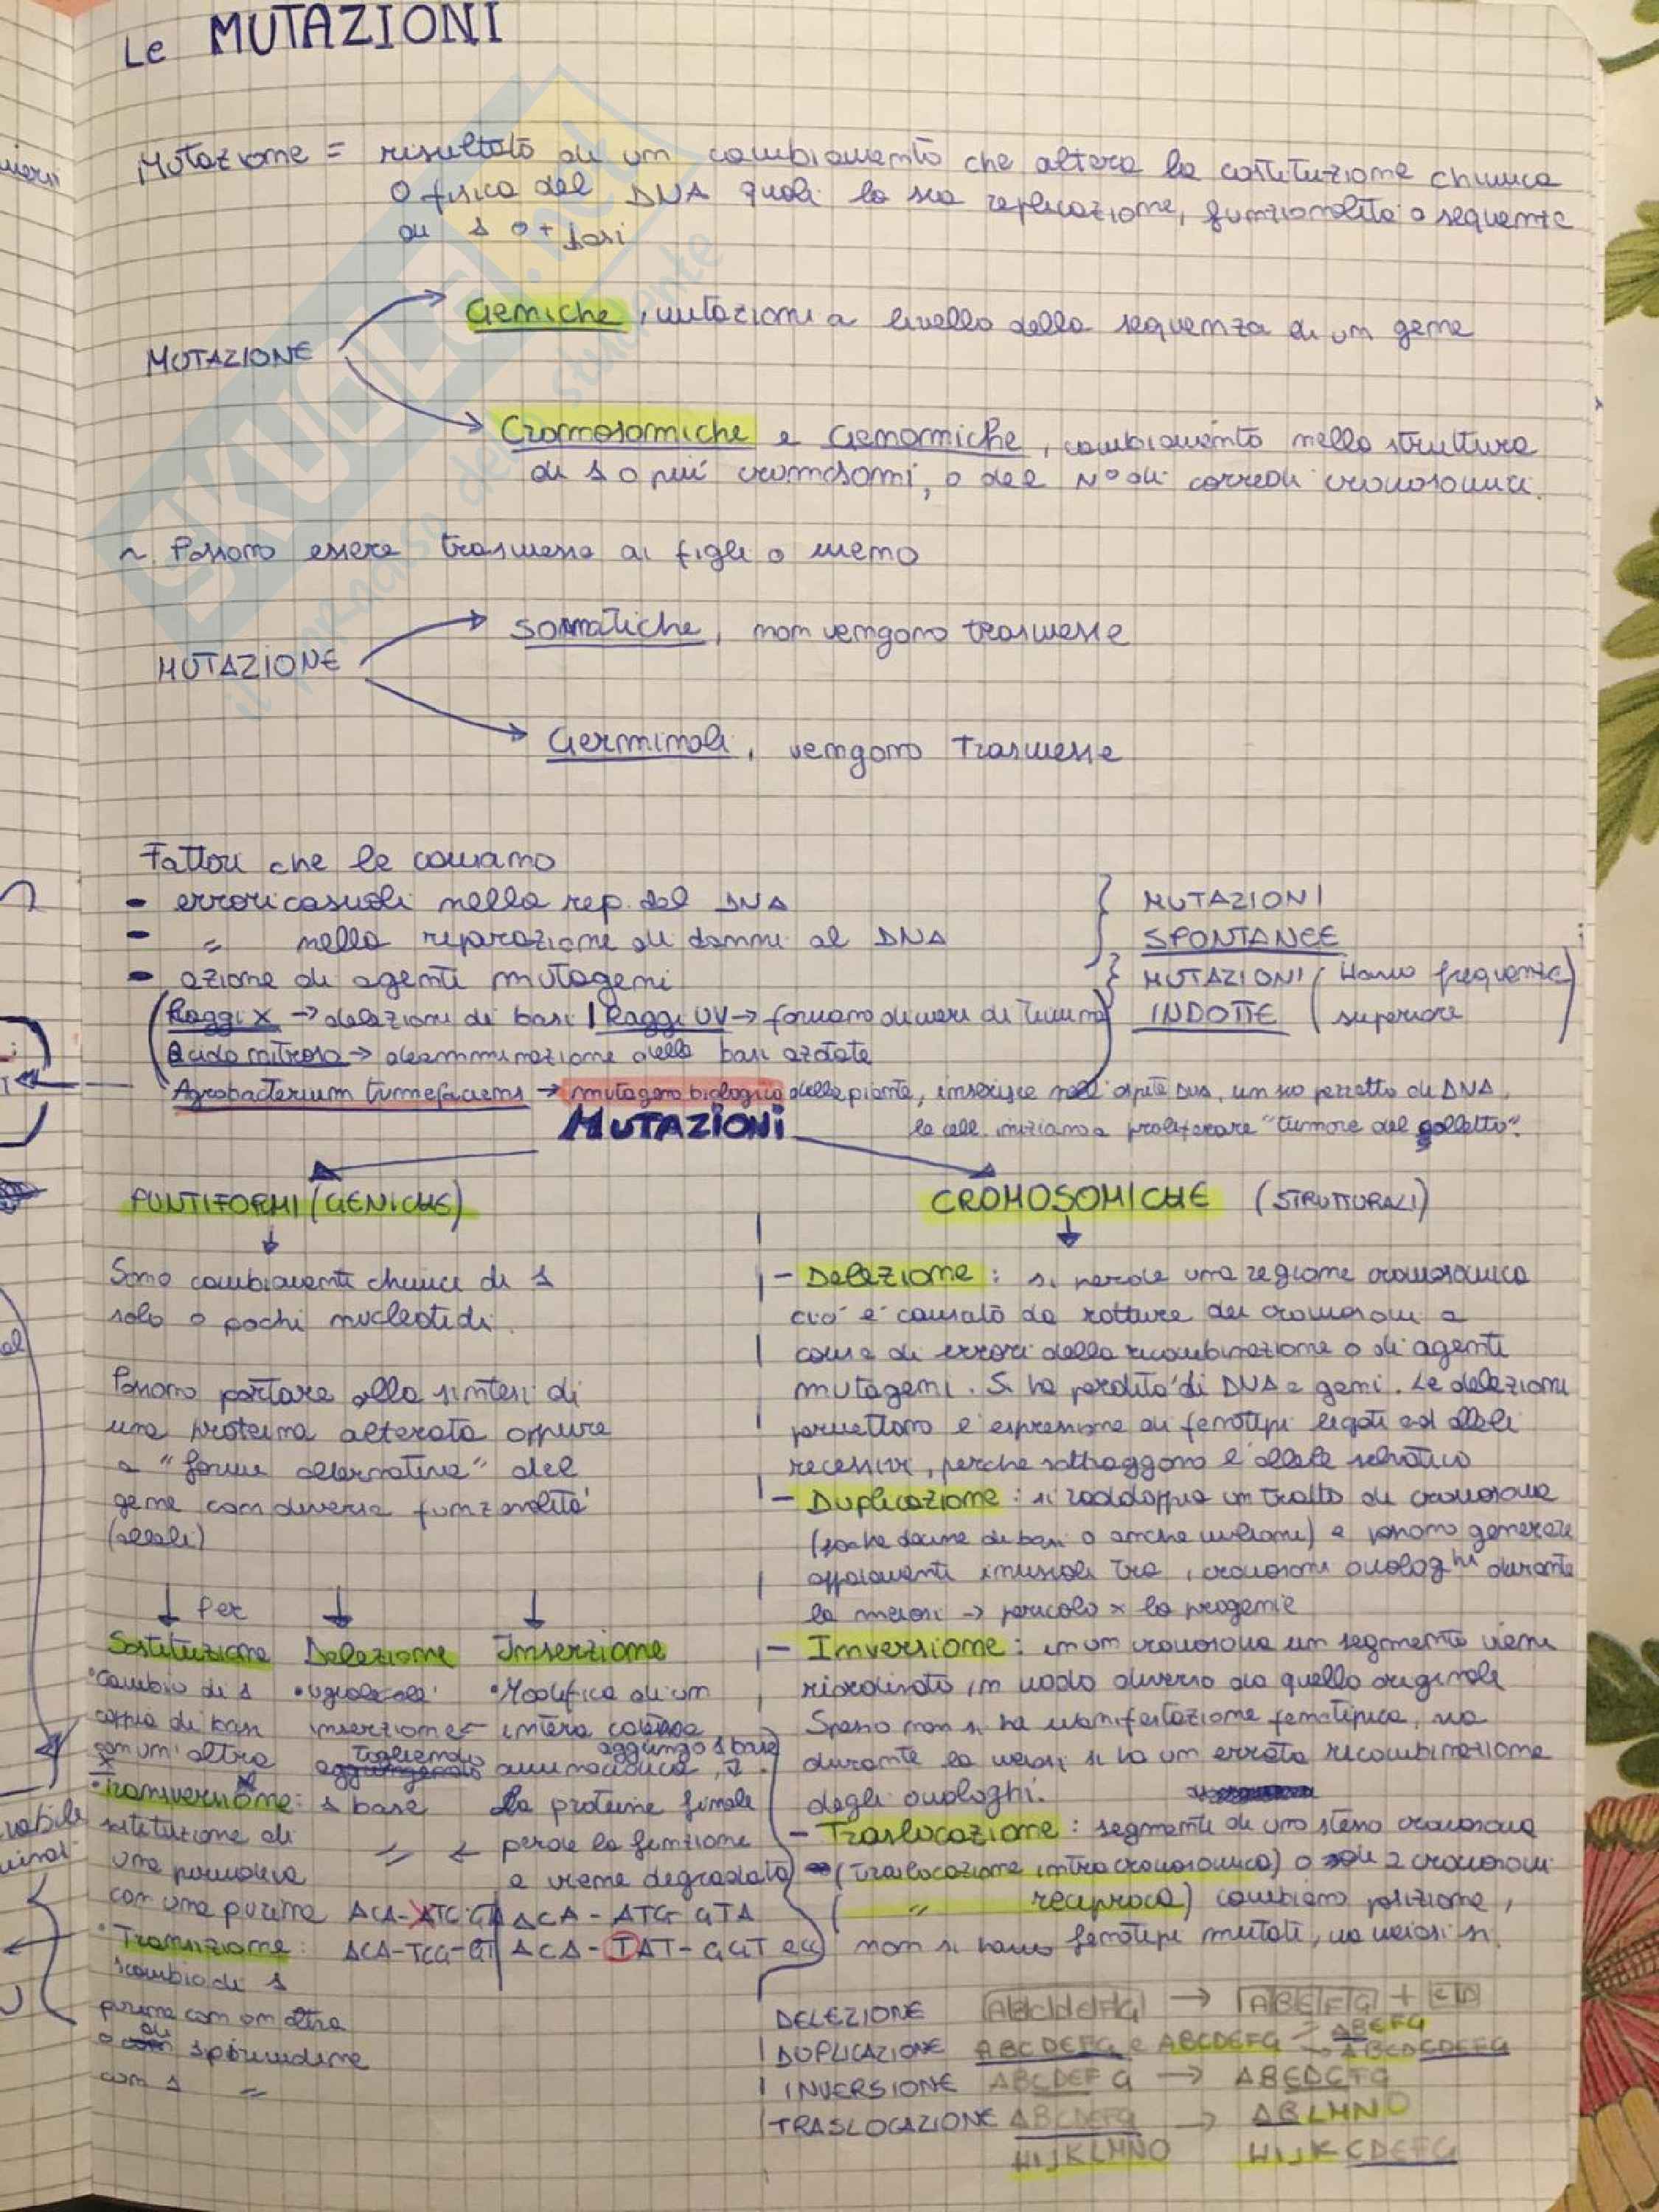 Le MUTAZIONI
Mutazione = risultato di un cambiamento che altera la costituzione chimica
o fisica del DNA quali la sua replicazione, funzionalità o sequenze
di 1 o + basi
Geniche, mutazioni a livello della sequenza di un gene
MUTAZIONE
Cromosomiche e Genomiche, cambiamento nella struttura
di 1 o più cromosomi, o del N° di corredi cromosomici.
~ Possono essere trasmesse ai figli o meno
Somatiche, non vengono trasmesse
MUTAZIONE
Germinali, vengono trasmesse
Fattori che le causano
- errori casuali nella rep. del DNA
- " nella riparazione di danni al DNA
- azione di agenti mutageni
MUTAZIONI
SPONTANEE
MUTAZIONI (Hanno frequenza
INDOTTE superiore)
(Raggi X → delezioni di basi | Raggi UV → formano dimeri di timina
Acido nitroso → deamminazione delle basi azotate
Agrobacterium tumefaciens → mutageno biologico delle piante, inserisce nell'ospite un suo pezzetto di DNA,
le cell. iniziano a proliferare "tumore del colletto".
MUTAZIONI
PUNTIFORMI (GENICHE)
Sono cambiamenti chimici di 1
solo o pochi nucleotidi.
Possono portare alla sintesi di
una proteina alterata oppure
a "forme alternative" del
gene con diversa funzionalità
(alleli)
↓ Per ↓ ↓
Sostituzione Delezione Inserzione
• Cambio di 1
coppia di basi
con un'altra
• Transversione:
sostituzione di
una pirimidina
con una purina
• Transizione:
scambio di 1
purina con un altra
o di 1 pirimidine
con 1 "
• Ugualealà
inserzione
togliendo
1 base
"
ACA-ATG-GTA
ACA-TGG-GT
• Modifica di un
intera catena
aggiungo 1 base
amminoacidica,
la proteine finale
← perde la funzione
e viene degradata
ACA - ATG GTA
ACA - TAT - GGT
CROMOSOMICHE (STRUTTURALI)
- Delezione: si perde una regione cromosomica
ciò è causato da rotture dei cromosomi a
causa di errori della ricombinazione o di agenti
mutageni. Si ha perdita di DNA e geni. Le delezioni
permettono l'espressione di fenotipi legati ad alleli
recessivi, perche sottraggono l'allele selvatico
- Duplicazione: si raddoppia un tratto di cromosoma
(poche decine di basi o anche milioni) e possono generare
appaiamenti inusuali tra i cromosomi omologhi durante
la meiosi → pericolo x la progenie
- Inversione: in un cromosoma un segmento viene
riordinato in modo diverso da quello originale
Spesso non si ha manifestazione fenotipica, ma
durante la meiosi si ha un errata ricombinazione
degli omologhi.
- Traslocazione: segmenti di uno stesso cromosoma
(traslocazione intracromosomica) o di 2 cromosomi
( " reciproca) cambiano posizione,
non si hanno fenotipi mutati, ma meiosi si.
DELEZIONE ABCDEFG → ABEFG + CD
DUPLICAZIONE ABCDEFG e ABCDEFG → ABEFG
→ ABCDCDEFG
INVERSIONE ABCDEFG → ABEDCFG
TRASLOCAZIONE ABCDEFG → ABLMNO
HIJKLMNO HIJKCDEFG
SKUOLA.net
il paradiso dello studente